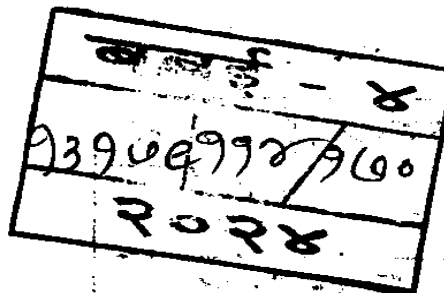 बबई - ४
१३१७५११२/१७०
२०२४